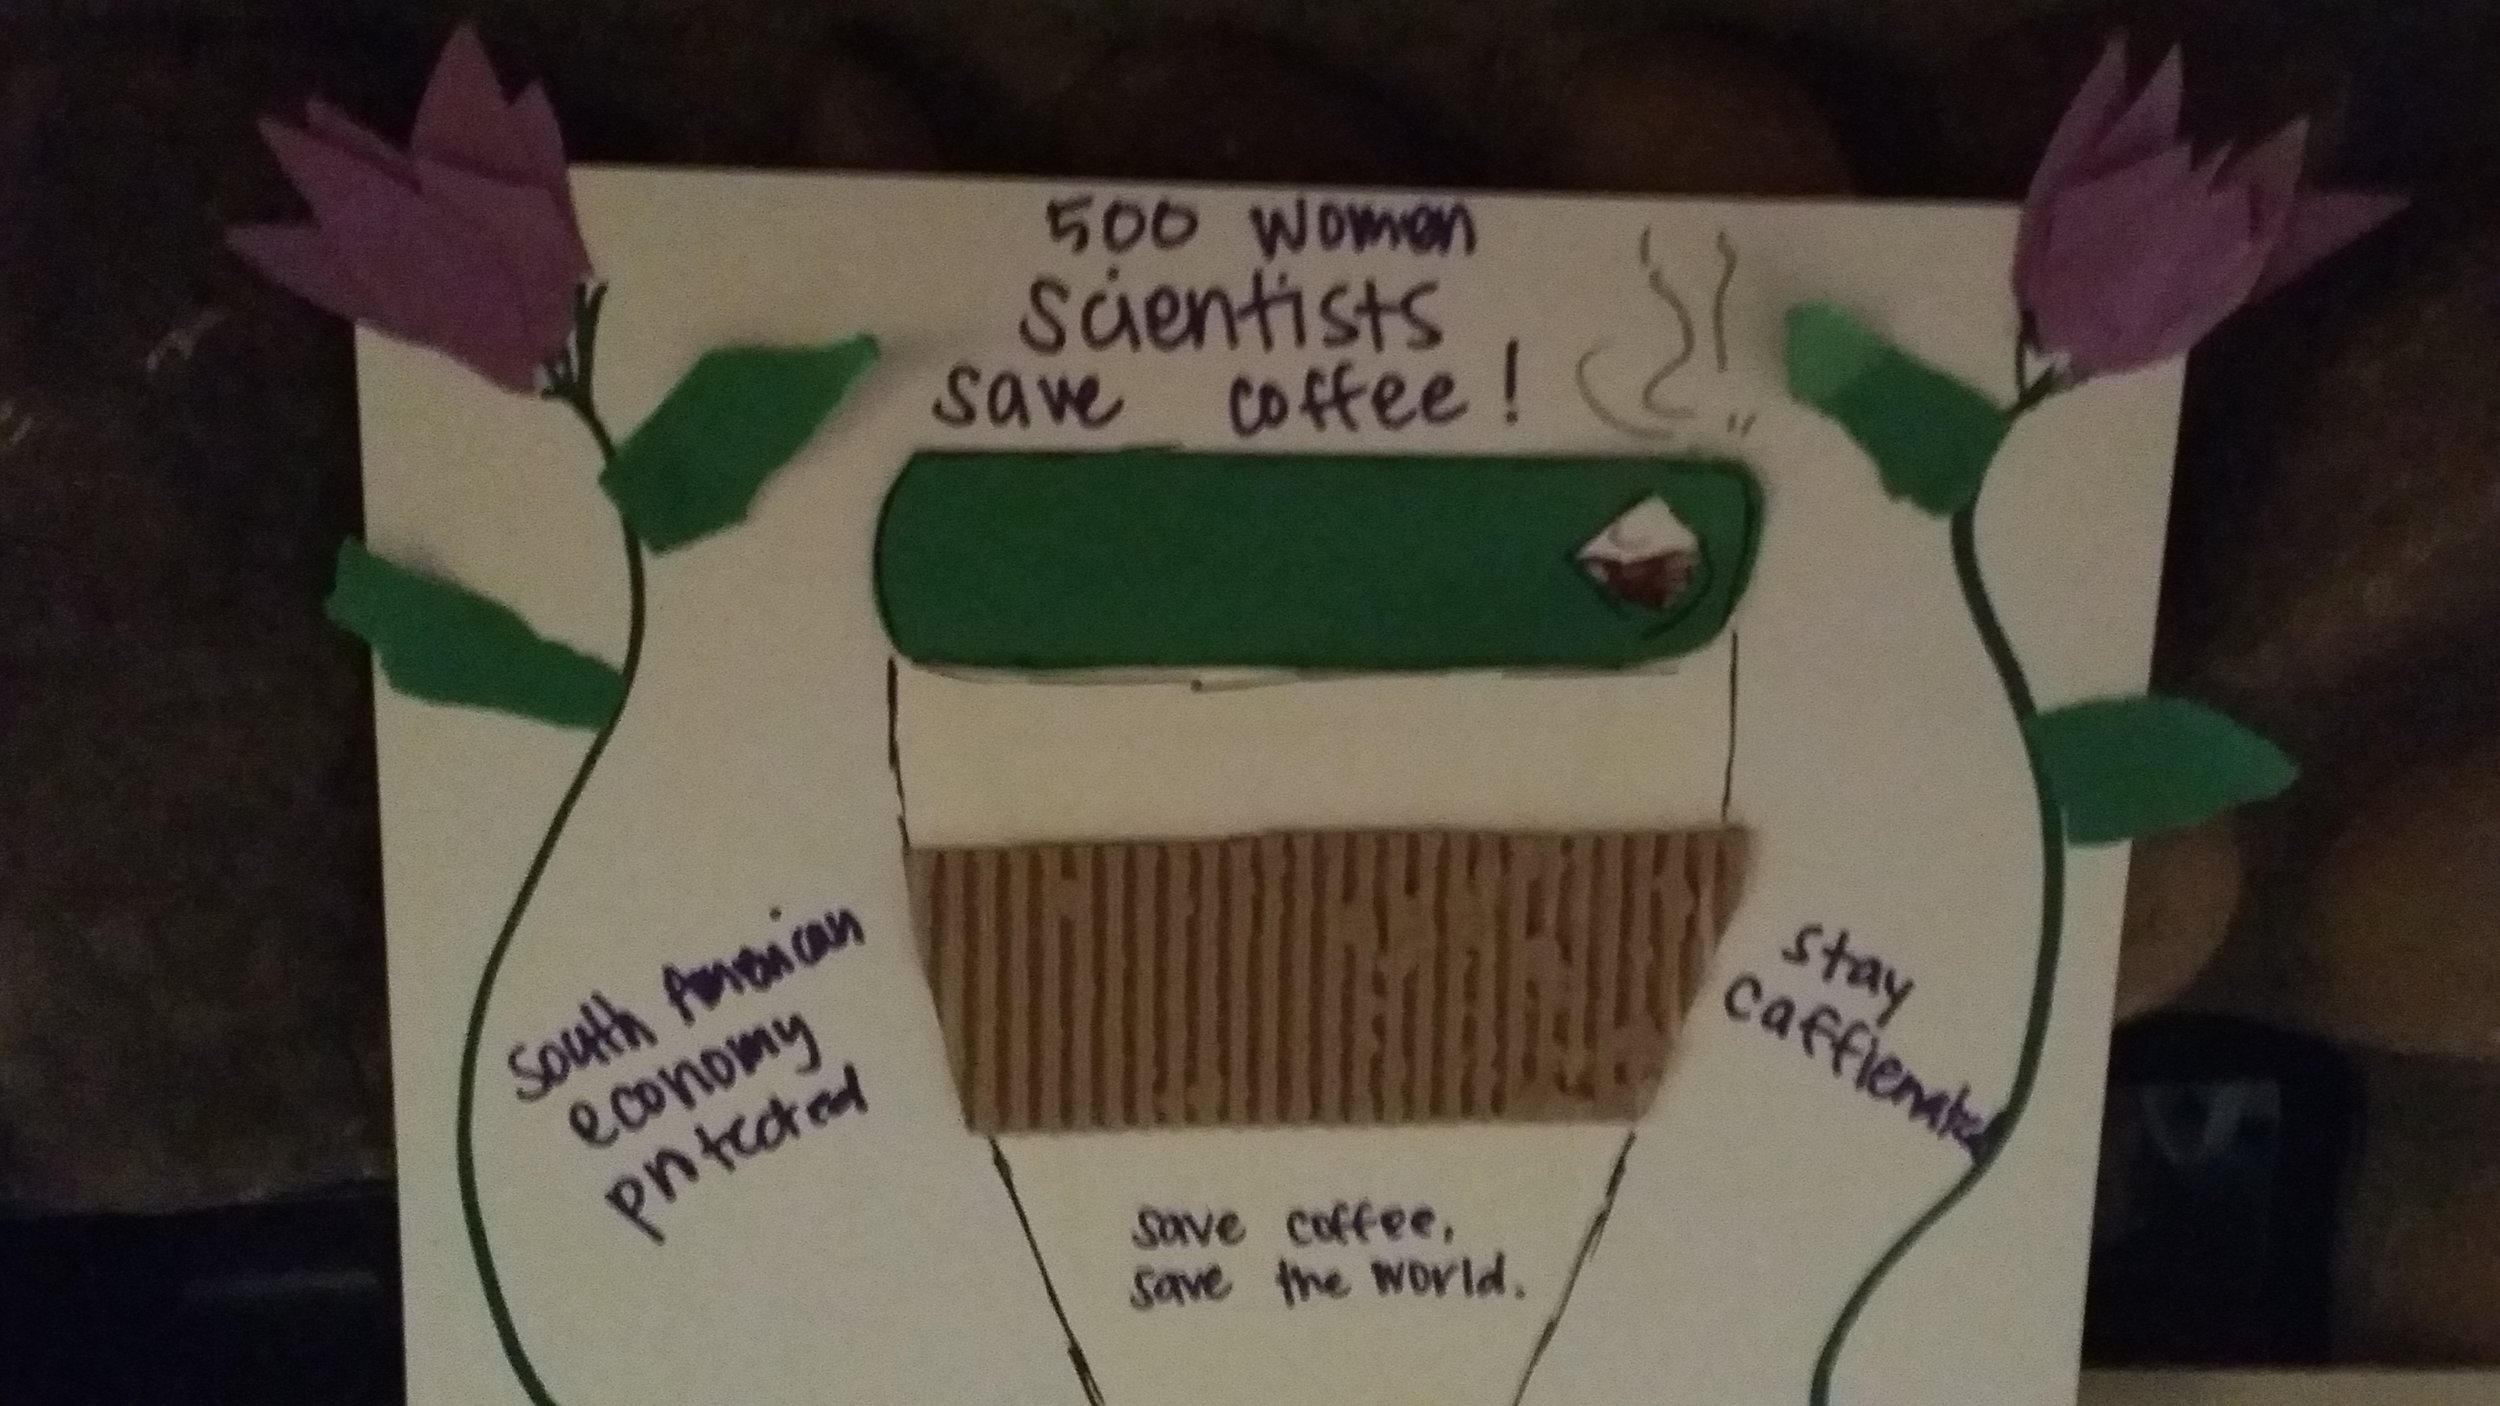 500 women
scientists
save coffee!
south American
economy
protected
stay
caffienated
save coffee,
save the world.